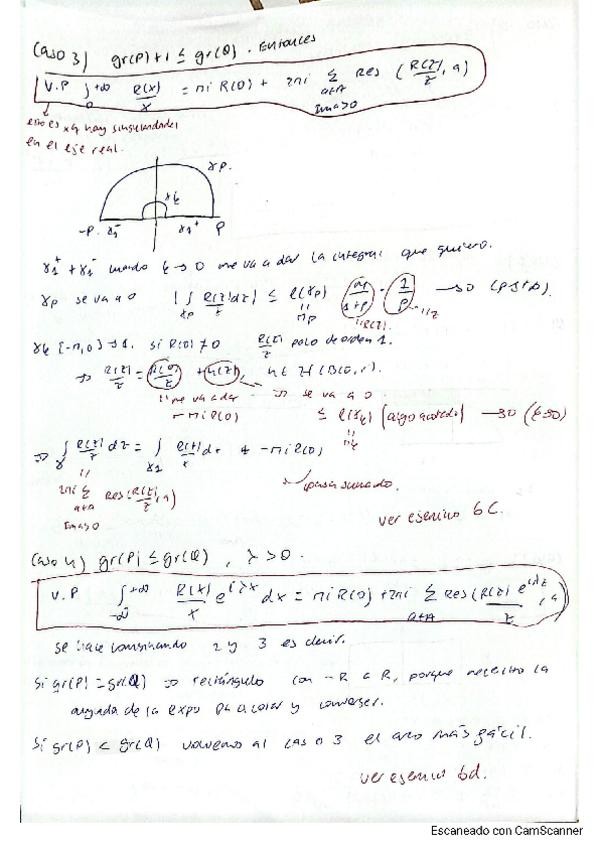 Caso 3) gr(P)+1 ≤ gr(Q). Entonces
V.P ∫_0^{+∞} R(x)/x = πi R(0) + 2πi Σ_{a∈A, Im a>0} Res (R(z)/z, a)
esto es xq hay singularidades
en el eje real.
γρ.
γε
-ρ. γ1^- γ1^+ ρ
γ1^+ + γ1^- cuando ε→0 me va a dar la integral que quiero.
γρ se va a 0 |∫_{γρ} R(z)/z dz| ≤ l(γρ) 1/ρ → 0
πρ
R(z)
γε [-π,0] → si R(0) ≠ 0 R(z)/z polo de orden 1.
⇒ R(z)/z = R(0)/z + h(z), h ∈ H(B(0,r).
me va a dar ⇒ se va a 0
-πi R(0) ≤ l(γε) [algo acotado] → 0 (ε→0)
πε
⇒ ∫_γ R(z)/z dz = ∫_{γ1} R(z)/z dz + -πi R(0)
2πi Σ_{a∈A, Im a>0} Res (R(z)/z, a)
↳ pasa sumado.
ver ejercicio 6c.
Caso 4) gr(P) ≤ gr(Q), λ>0.
V.P ∫_{-∞}^{+∞} R(x)/x e^{iλx} dx = πi R(0) + 2πi Σ_{a∈A} Res (R(z) e^{iλz}/z, a)
se hace combinando 2 y 3 es decir.
Si gr(P) = gr(Q) ⇒ rectángulo con -R a R, porque necesito la
ayuda de la expo para acotar y converser.
Si gr(P) < gr(Q) volvemos al caso 3 el arco más fácil.
ver ejercicio 6d.
Escaneado con CamScanner